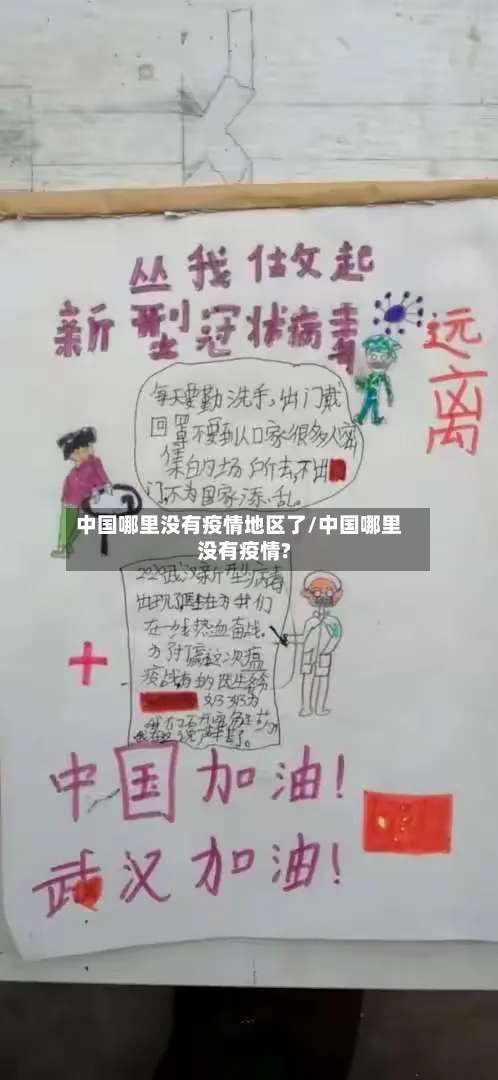 丛我做起
新型冠状病毒
远离
每天要勤洗手,出门戴
回罩不要到人口家很多人密
集的场所去,不出
门,不为国家添乱。
中国哪里没有疫情地区了/中国哪里
没有疫情?
2020武汉新型病毒
出现了医生在为我们
在一线热血奋战。
为了打赢这次瘟
疫战
中国加油!
武汉加油!